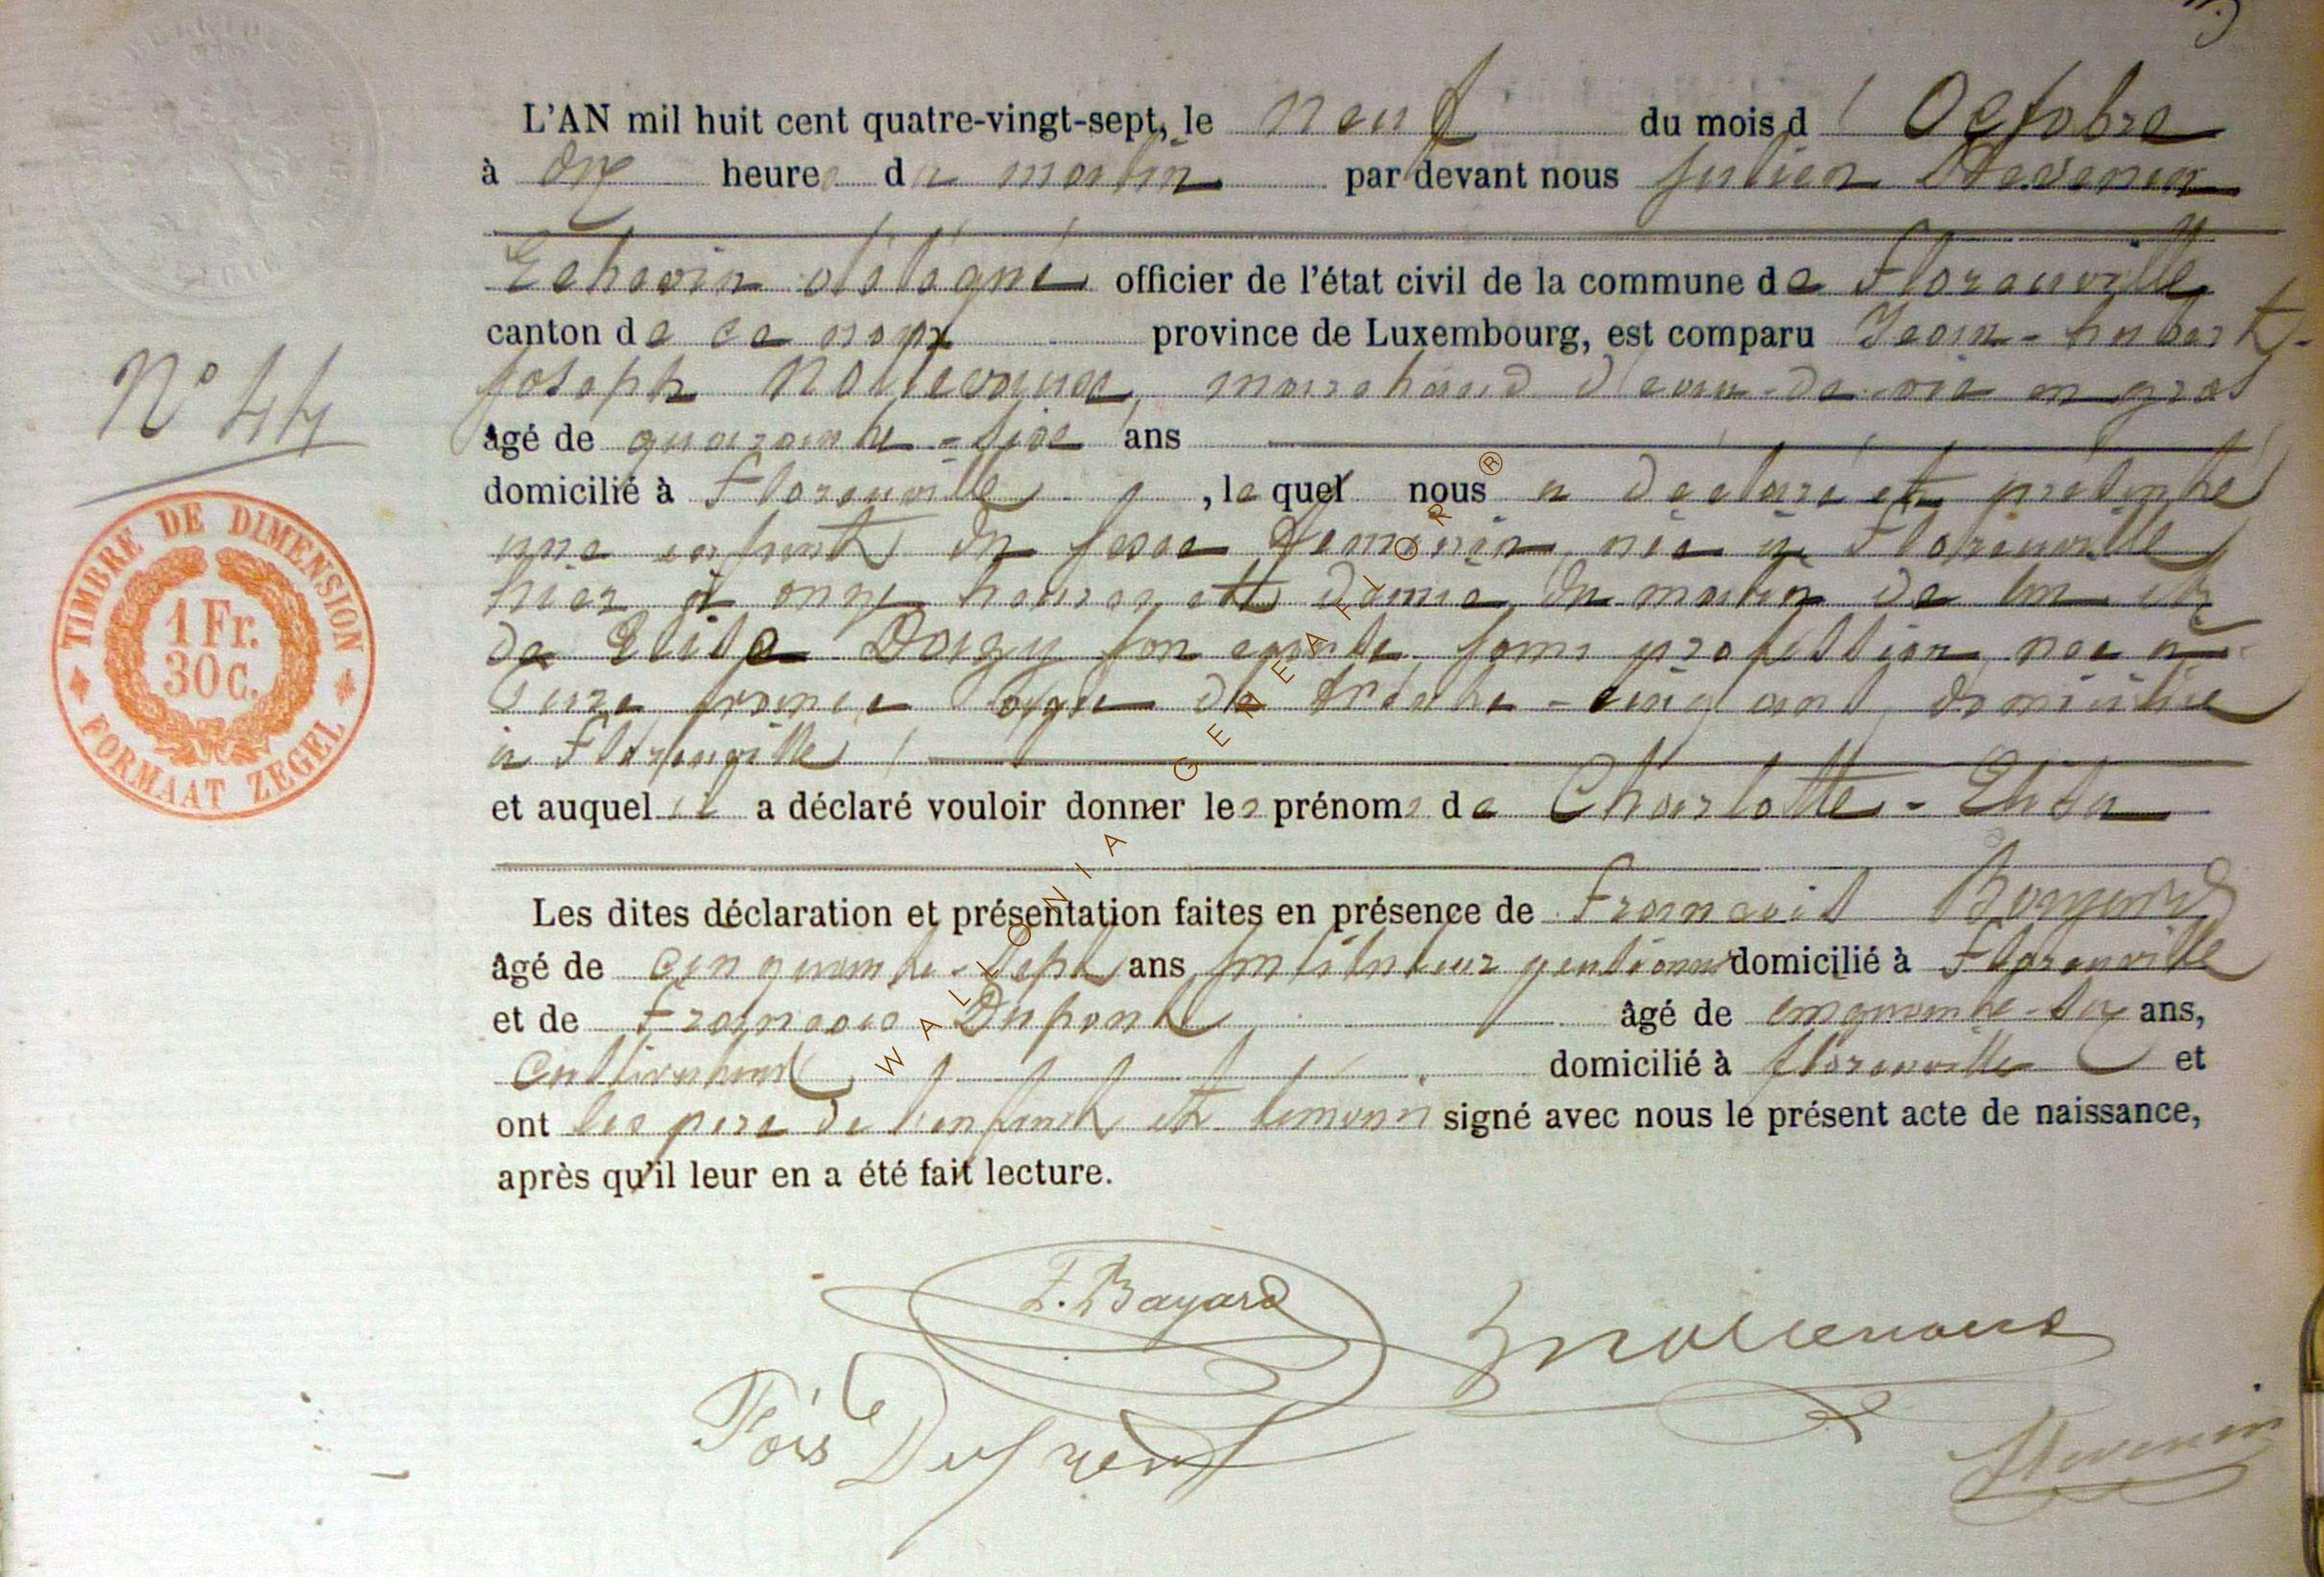 L'AN mil huit cent quatre-vingt-sept, le neuf du mois d'Octobre
à dix heures du matin par devant nous Julien Stevenin
Echevin délégué officier de l'état civil de la commune de Florenville
canton de ce nom province de Luxembourg, est comparu Jean-hubert-
Joseph marchand d'eau-de-vie en gros
âgé de quarante-six ans
domicilié à Florenville, lequel nous a déclaré et présenté
une enfant du sexe féminin, née à Florenville
hier à onze heures et demie du matin de lui et
de Elisa son épouse sans profession née à
france âgée de trente-cinq ans, domiciliée
à Florenville
et auquel il a déclaré vouloir donner les prénoms de Charlotte-Elisa
Les dites déclaration et présentation faites en présence de François Bayard
âgé de cinquante-sept ans, instituteur pensionné domicilié à Florenville
et de François Dupont âgé de cinquante-six ans,
Cultivateur, domicilié à florenville et
ont les père de l'enfant et témoins signé avec nous le présent acte de naissance,
après qu'il leur en a été fait lecture.
N° 44
TIMBRE DE DIMENSION
1 Fr.
30 c.
FORMAAT ZEGEL
F. Bayard
Fois Dupont
Stevenin
WALLONIA GENEAFLOR ®